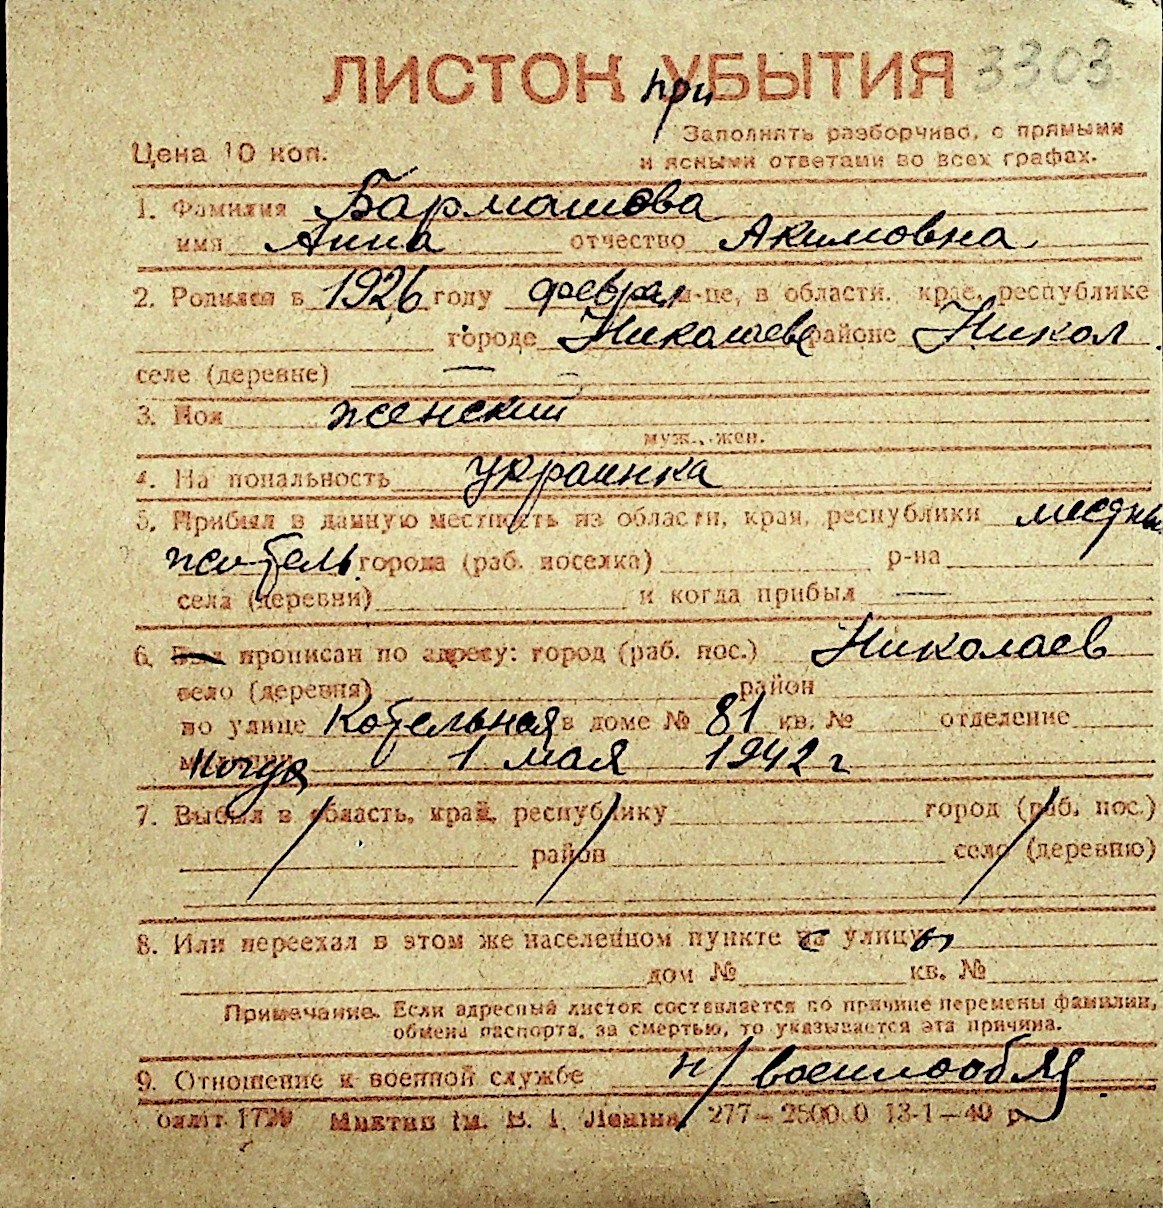 ЛИСТОК при УБЫТИЯ 3303
Заполнять разборчиво, с прямыми
Цена 10 коп.
и ясными ответами во всех графах.
1. Фамилия Бармашова
имя Анна отчество Акимовна
2. Родился в 1926 году феврал м-це, в области, крае, республике
городе Николаеве районе Никол
селе (деревне) —
3. Пол женский
муж., жен.
4. Национальность украинка
5. Прибыл в данную местность из области, края, республики местн
житель города (раб. поселка) р-на
села (деревни) и когда прибыл —
6. Был прописан по адресу: город (раб. пос.) Николаев
село (деревня) район
по улице Котельная в доме № 81 кв. № отделение
милиции Когда 1 мая 1942 г
7. Выбыл в область, край, республику город (раб. пос.)
район село (деревню)
8. Или переехал в этом же населенном пункте с улицы
дом № кв. №
Примечание. Если адресный листок составляется по причине перемены фамилии,
обмена паспорта, за смертью, то указывается эта причина.
9. Отношение к военной службе н/военнообяз
277–250000 13-1–40 р.